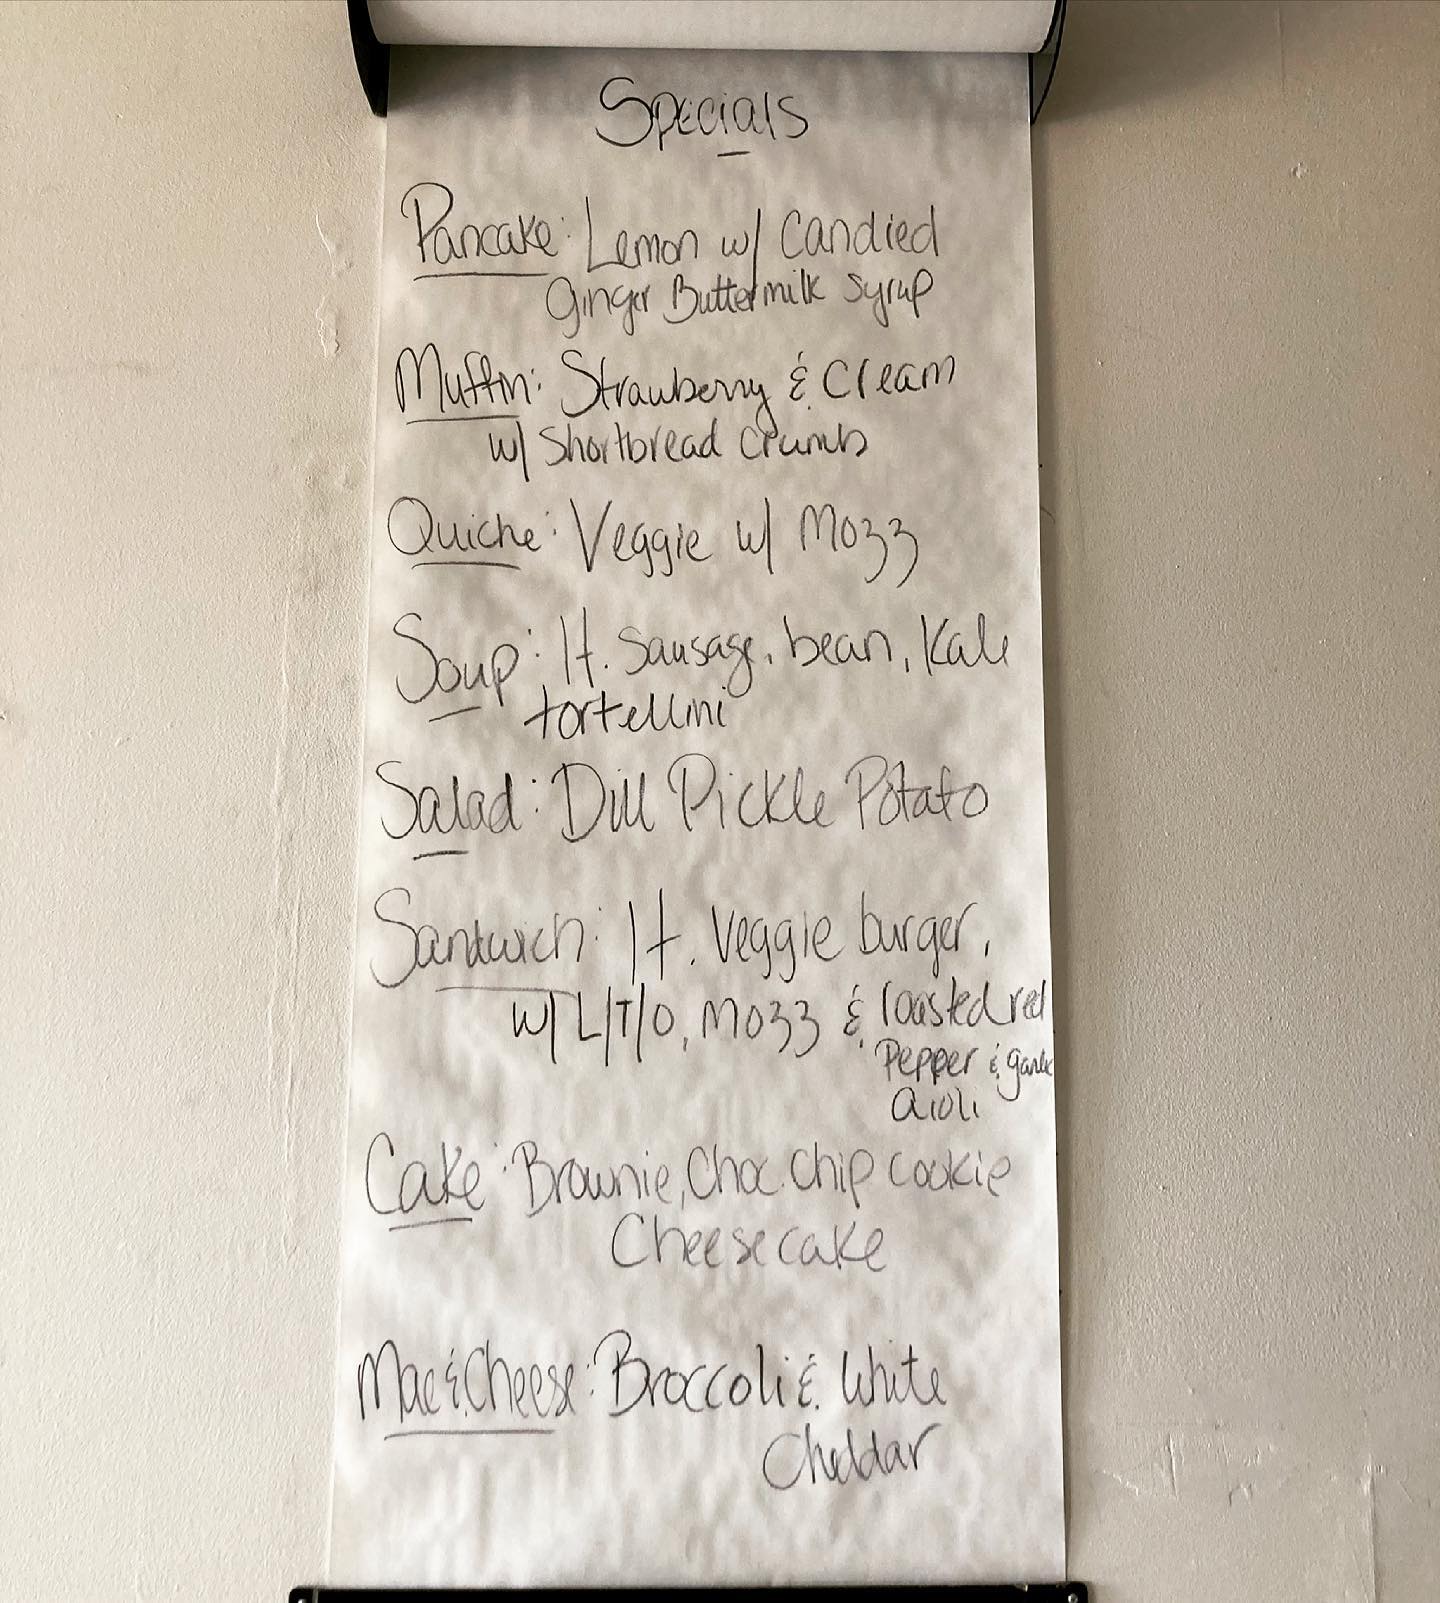 Specials
Pancake: Lemon w/ Candied
Ginger Buttermilk Syrup
Muffin: Strawberry & Cream
w/ Shortbread Crumb
Quiche: Veggie w/ Mozz
Soup: It. Sausage, bean, Kale
tortellini
Salad: Dill Pickle Potato
Sandwich: It. Veggie burger,
w/ L/T/O, Mozz & roasted red
Pepper & garlic
aioli
Cake: Brownie, Choc. Chip Cookie
Cheesecake
Mac & Cheese: Broccoli & White
Cheddar